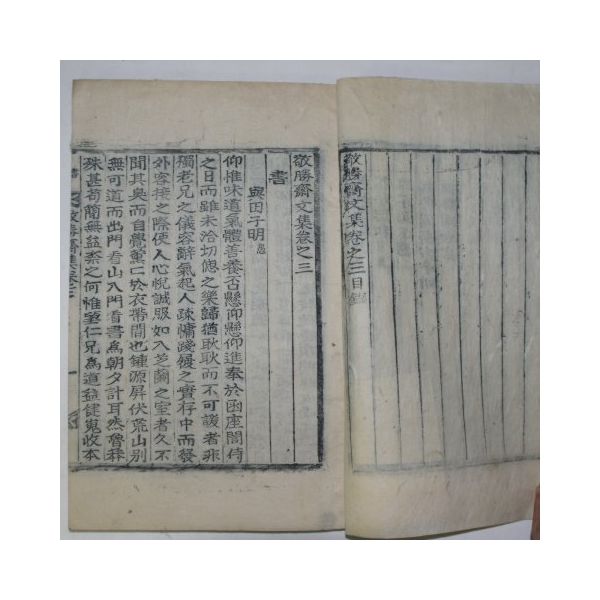 敬勝齋文集卷之三目錄
敬勝齋文集卷之三
書
與田子明愚
仰惟味道氣體善養否懸仰懸仰進奉於函座間侍
之日而雖未洽切偲之樂歸猶耿耿而不可諼者非
獨老兄之儀容辭氣起人疎慵踐履之實存中而發
外容接之際使人心悅誠服如入芝蘭之室者久不
聞其臭而自覺薰
於衣帶間也鍾源屛伏荒山別
無可道而出門看山入門看書爲朝夕計耳然魯莽
殊甚苟簡無益柰之何惟望仁兄爲道益健
收本
書
敬勝齋集卷之三
一